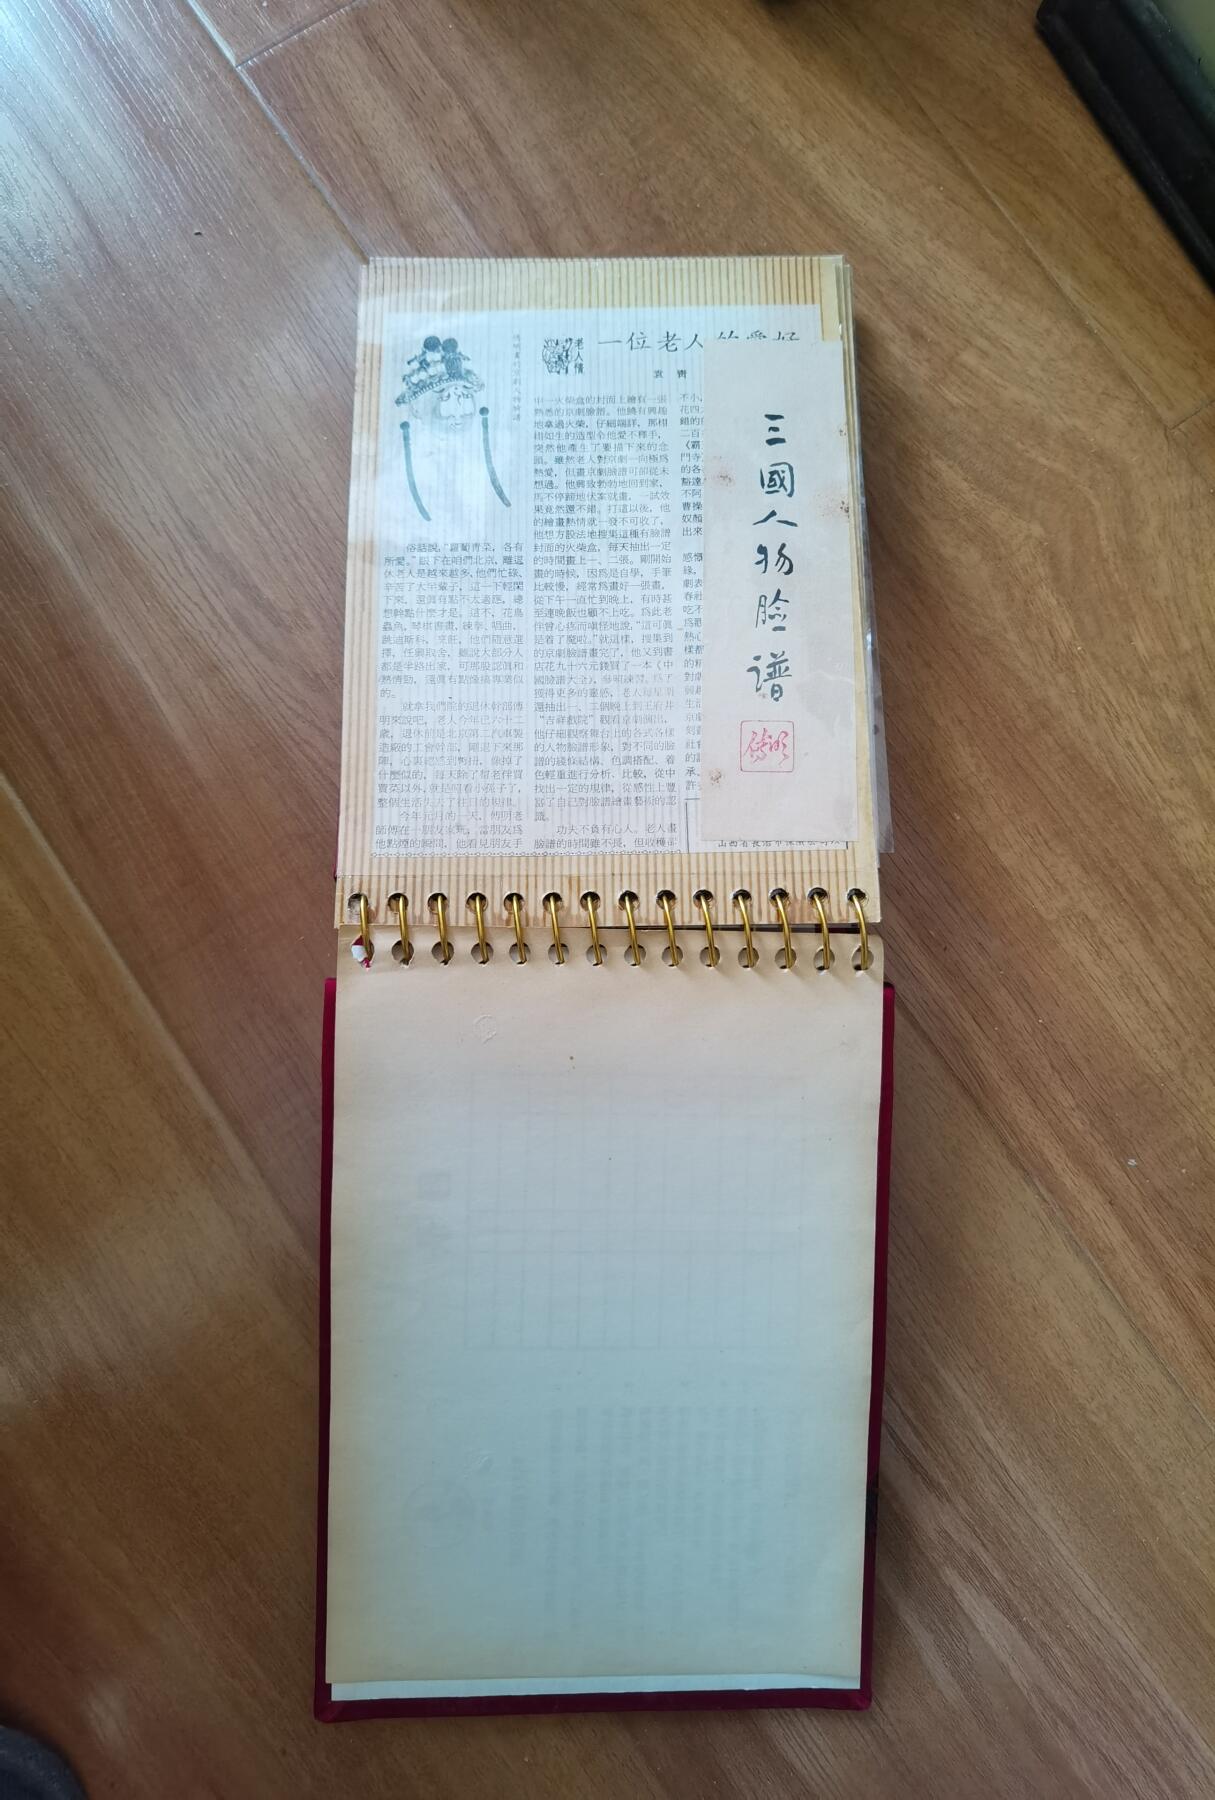 一位老人的愛好
老人情
袁 青
俗話說，“蘿蔔青菜，各有
所愛。”眼下在咱們北京，離退
休老人是越來越多，他們忙碌、
辛苦了大半輩子，這一下輕閑
下來，還真有點不太適應，總
想幹點什麼才是。這不，花鳥
蟲魚，琴棋書畫，練拳、唱曲，
跳迪斯科，烹飪，他們隨意選
擇，任興取舍，雖說大部分人
都是半路出家，可那股認真和
熱情勁，還真有點像搞專業似
的。
就拿我們院的退休幹部傅
明來說吧，老人今年已六十二
歲，退休前是北京第二汽車製
造廠的工會幹部，剛退下來那
陣，心裏總感到彆扭，像掉了
什麼似的，每天除了幫老伴買
買菜以外，就是照看小孫子了，
整個生活失去了往日的規律。
今年元月的一天，傅明老
師傅在一朋友家玩，當朋友爲
他點煙的瞬間，他看見朋友手
中一火柴盒的封面上繪有一張
熟悉的京劇臉譜。他饒有興趣
地拿過火柴，仔細端詳，那栩
栩如生的造型令他愛不釋手，
突然他產生了要描下來的念
頭。雖然老人對京劇一向極爲
熱愛，但畫京劇臉譜可卻從未
想過。他興致勃勃地回到家，
馬不停蹄地伏案就畫，一試效
果竟然還不錯。打這以後，他
的繪畫熱情就一發不可收了，
他想方設法地搜集這種有臉譜
封面的火柴盒，每天抽出一定
的時間畫上一、二張。剛開始
畫的時候，因爲是自學，手筆
比較慢，經常爲畫好一張畫，
從下午一直忙到晚上，有時甚
至連晚飯也顧不上吃。爲此老
伴曾心疼而嗔怪地說，“這可真
是着了魔啦。”就這樣，搜集到
的京劇臉譜畫完了，他又到書
店花九十六元錢買了一本《中
國臉譜大全》，參照練習。爲了
獲得更多的靈感，老人每星期
還抽出一、二個晚上到王府井
“吉祥戲院”觀看京劇演出，
他仔細觀察舞台上的各式各樣
的人物臉譜形象，對不同的臉
譜的綫條結構、色調搭配、着
色輕重進行分析、比較，從中
找出一定的規律，從感性上豐
富了自己對臉譜繪畫藝術的認
識。
功夫不負有心人。老人畫
臉譜的時間雖不長，但收穫卻
不小，
花四
錯的
二百
《霸
門寺
的各
豁達
不阿
曹操
奴顏
出來
感慨
緣，
劇表
春社
吃不
爲
熱心
樣都
的精
對
生活
京劇
刻
社會
的
承、
許
三國人物臉譜
傅明